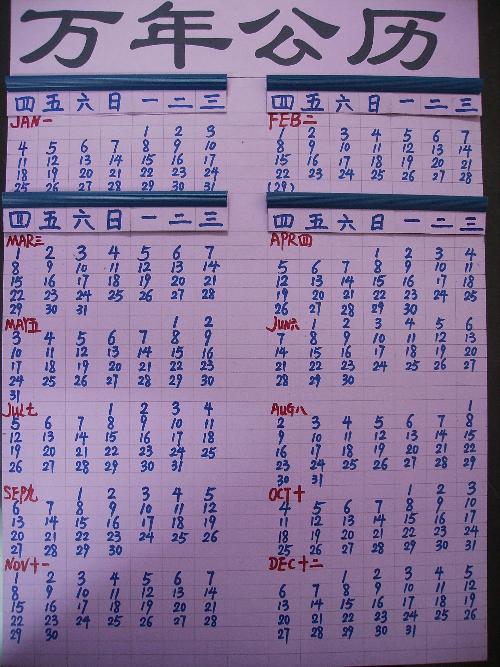 万年公历
四 五 六 日 一 二 三
JAN一
1 2 3
4 5 6 7 8 9 10
11 12 13 14 15 16 17
18 19 20 21 22 23 24
25 26 27 28 29 30 31
四 五 六 日 一 二 三
FEB二
1 2 3 4 5 6 7
8 9 10 11 12 13 14
15 16 17 18 19 20 21
22 23 24 25 26 27 28
(29)
四 五 六 日 一 二 三
MAR三
1 2 3 4 5 6 7
8 9 10 11 12 13 14
15 16 17 18 19 20 21
22 23 24 25 26 27 28
29 30 31
四 五 六 日 一 二 三
APR四
1 2 3 4
5 6 7 8 9 10 11
12 13 14 15 16 17 18
19 20 21 22 23 24 25
26 27 28 29 30
MAY五
1 2
3 4 5 6 7 8 9
10 11 12 13 14 15 16
17 18 19 20 21 22 23
24 25 26 27 28 29 30
31
JUN六
1 2 3 4 5 6
7 8 9 10 11 12 13
14 15 16 17 18 19 20
21 22 23 24 25 26 27
28 29 30
JUL七
1 2 3 4
5 6 7 8 9 10 11
12 13 14 15 16 17 18
19 20 21 22 23 24 25
26 27 28 29 30 31
AUG八
1
2 3 4 5 6 7 8
9 10 11 12 13 14 15
16 17 18 19 20 21 22
23 24 25 26 27 28 29
30 31
SEP九
1 2 3 4 5
6 7 8 9 10 11 12
13 14 15 16 17 18 19
20 21 22 23 24 25 26
27 28 29 30
OCT十
1 2 3
4 5 6 7 8 9 10
11 12 13 14 15 16 17
18 19 20 21 22 23 24
25 26 27 28 29 30 31
NOV十一
1 2 3 4 5 6 7
8 9 10 11 12 13 14
15 16 17 18 19 20 21
22 23 24 25 26 27 28
29 30
DEC十二
1 2 3 4 5
6 7 8 9 10 11 12
13 14 15 16 17 18 19
20 21 22 23 24 25 26
27 28 29 30 31